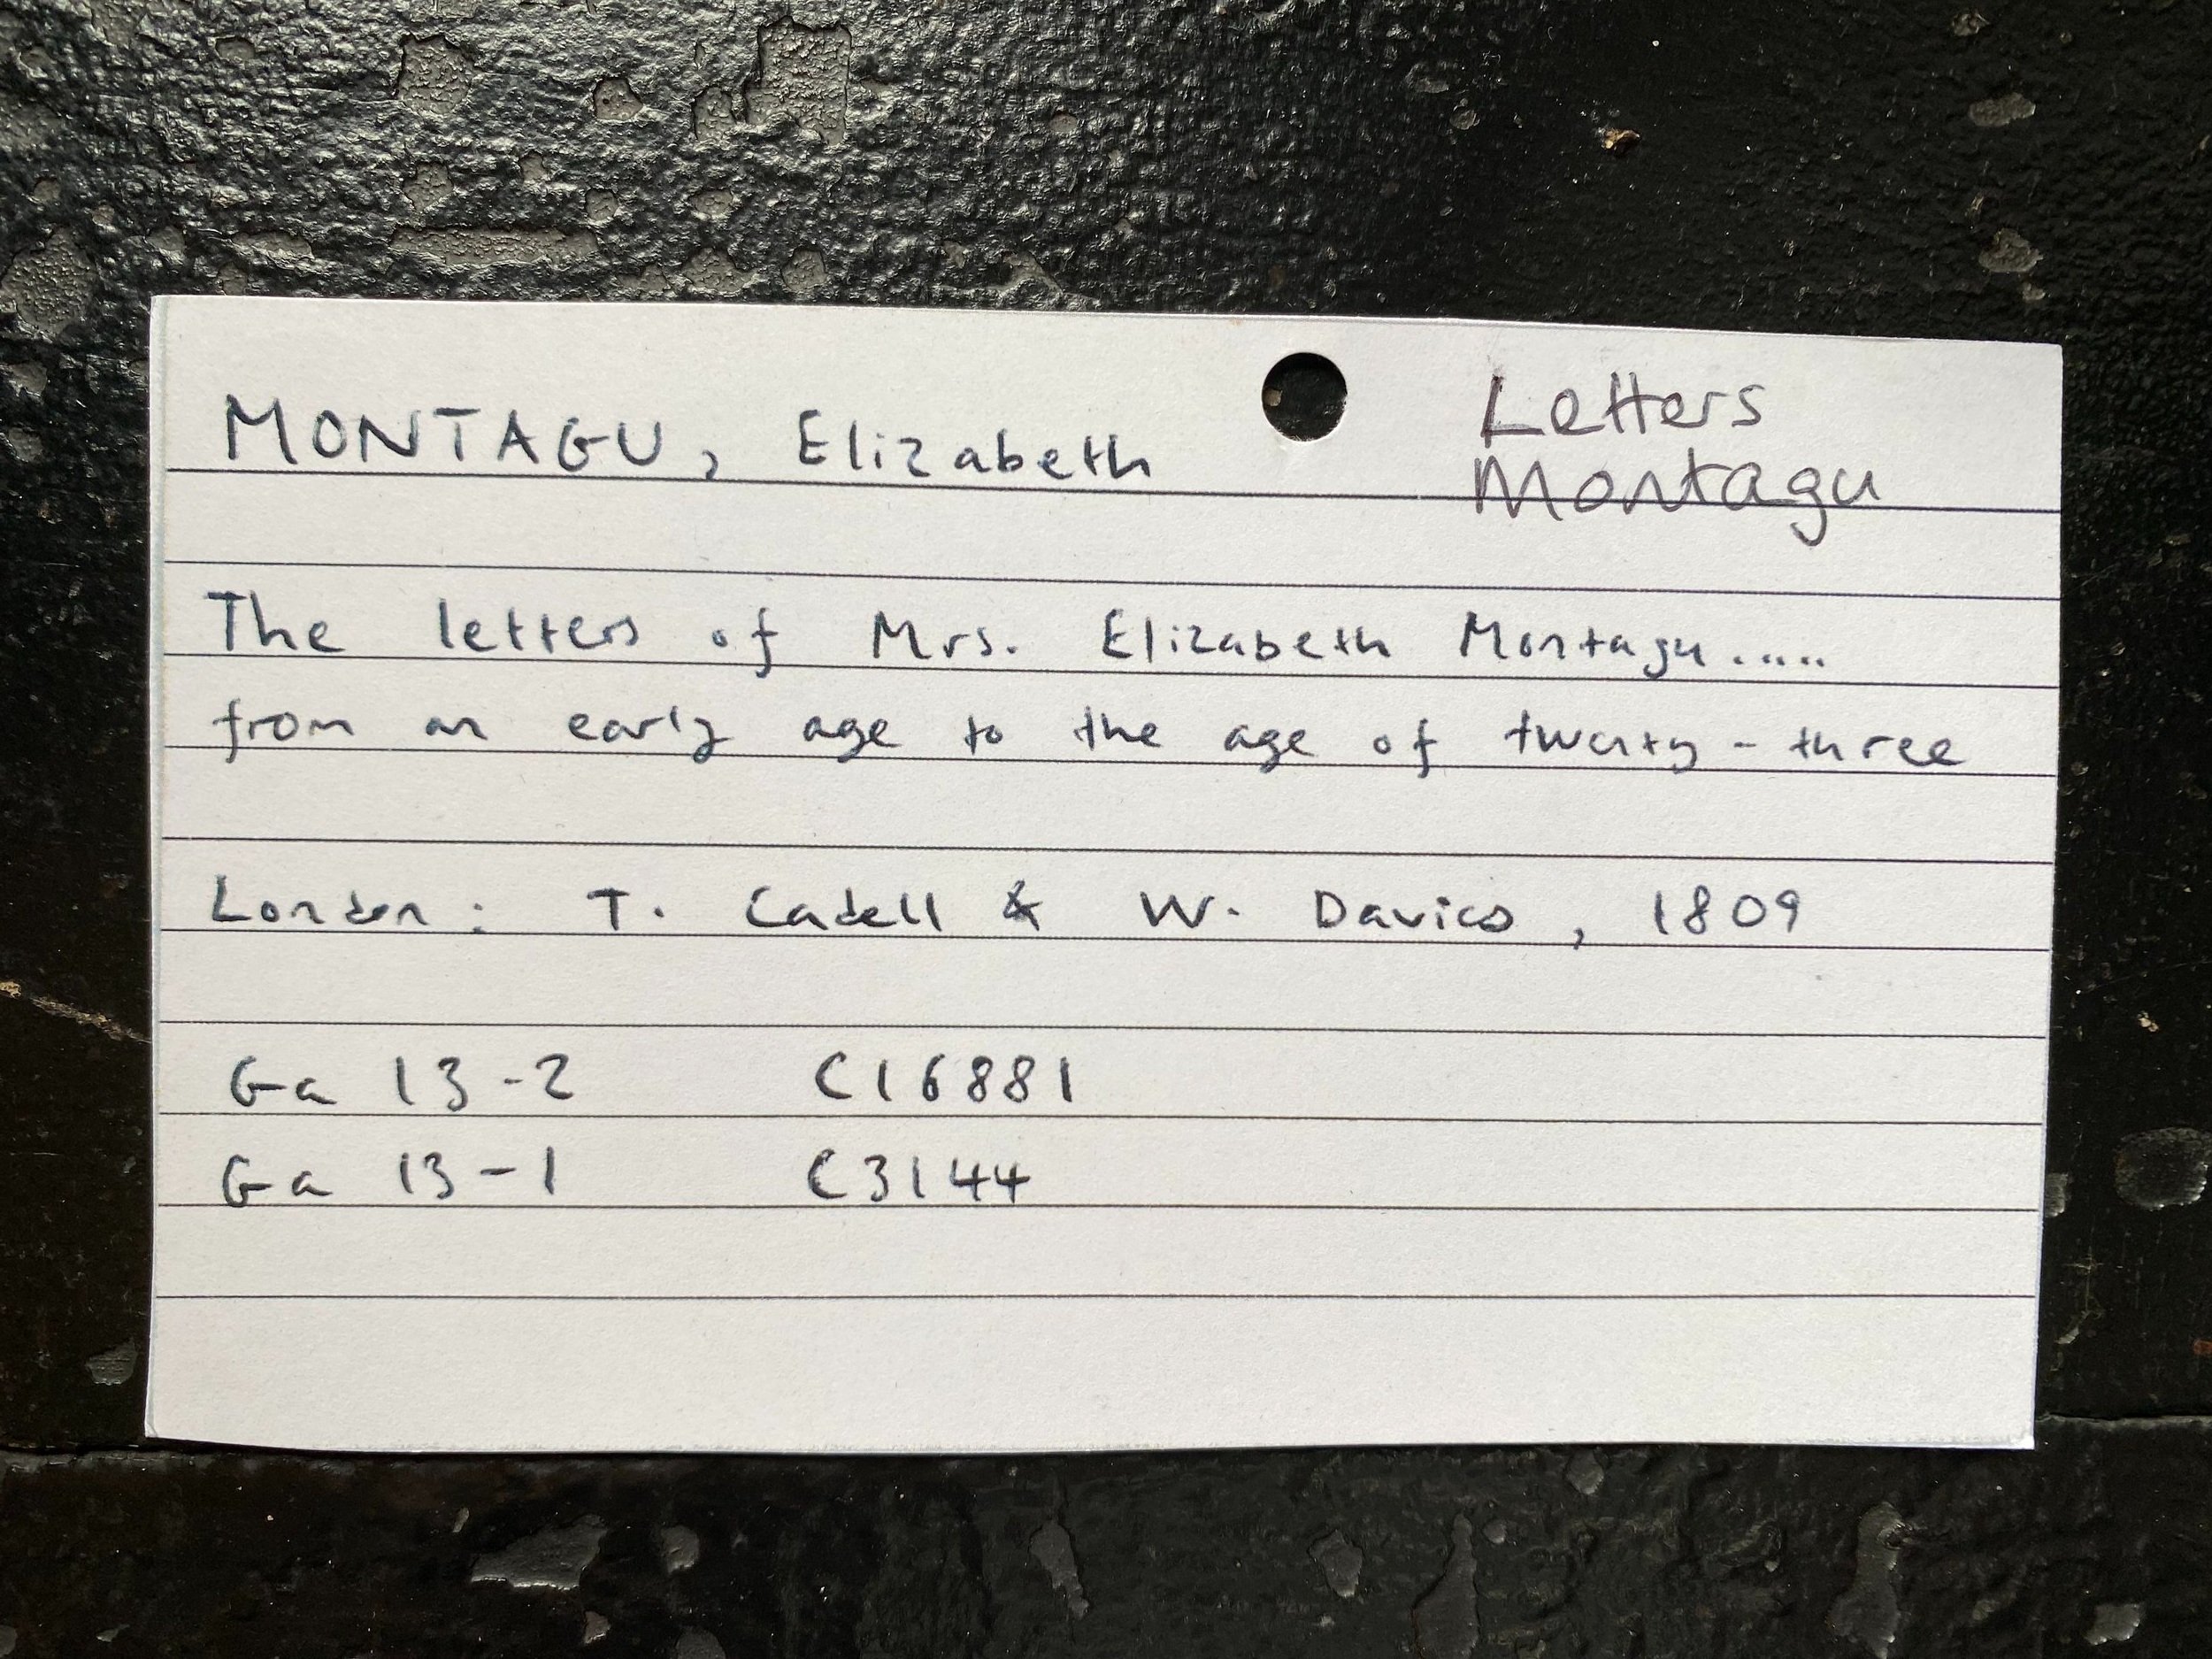 MONTAGU, Elizabeth
Letters
Montagu
The letters of Mrs. Elizabeth Montagu.....
from an early age to the age of twenty-three
London: T. Cadell & W. Davies, 1809
Ga 13-2 C16881
Ga 13-1 C3144